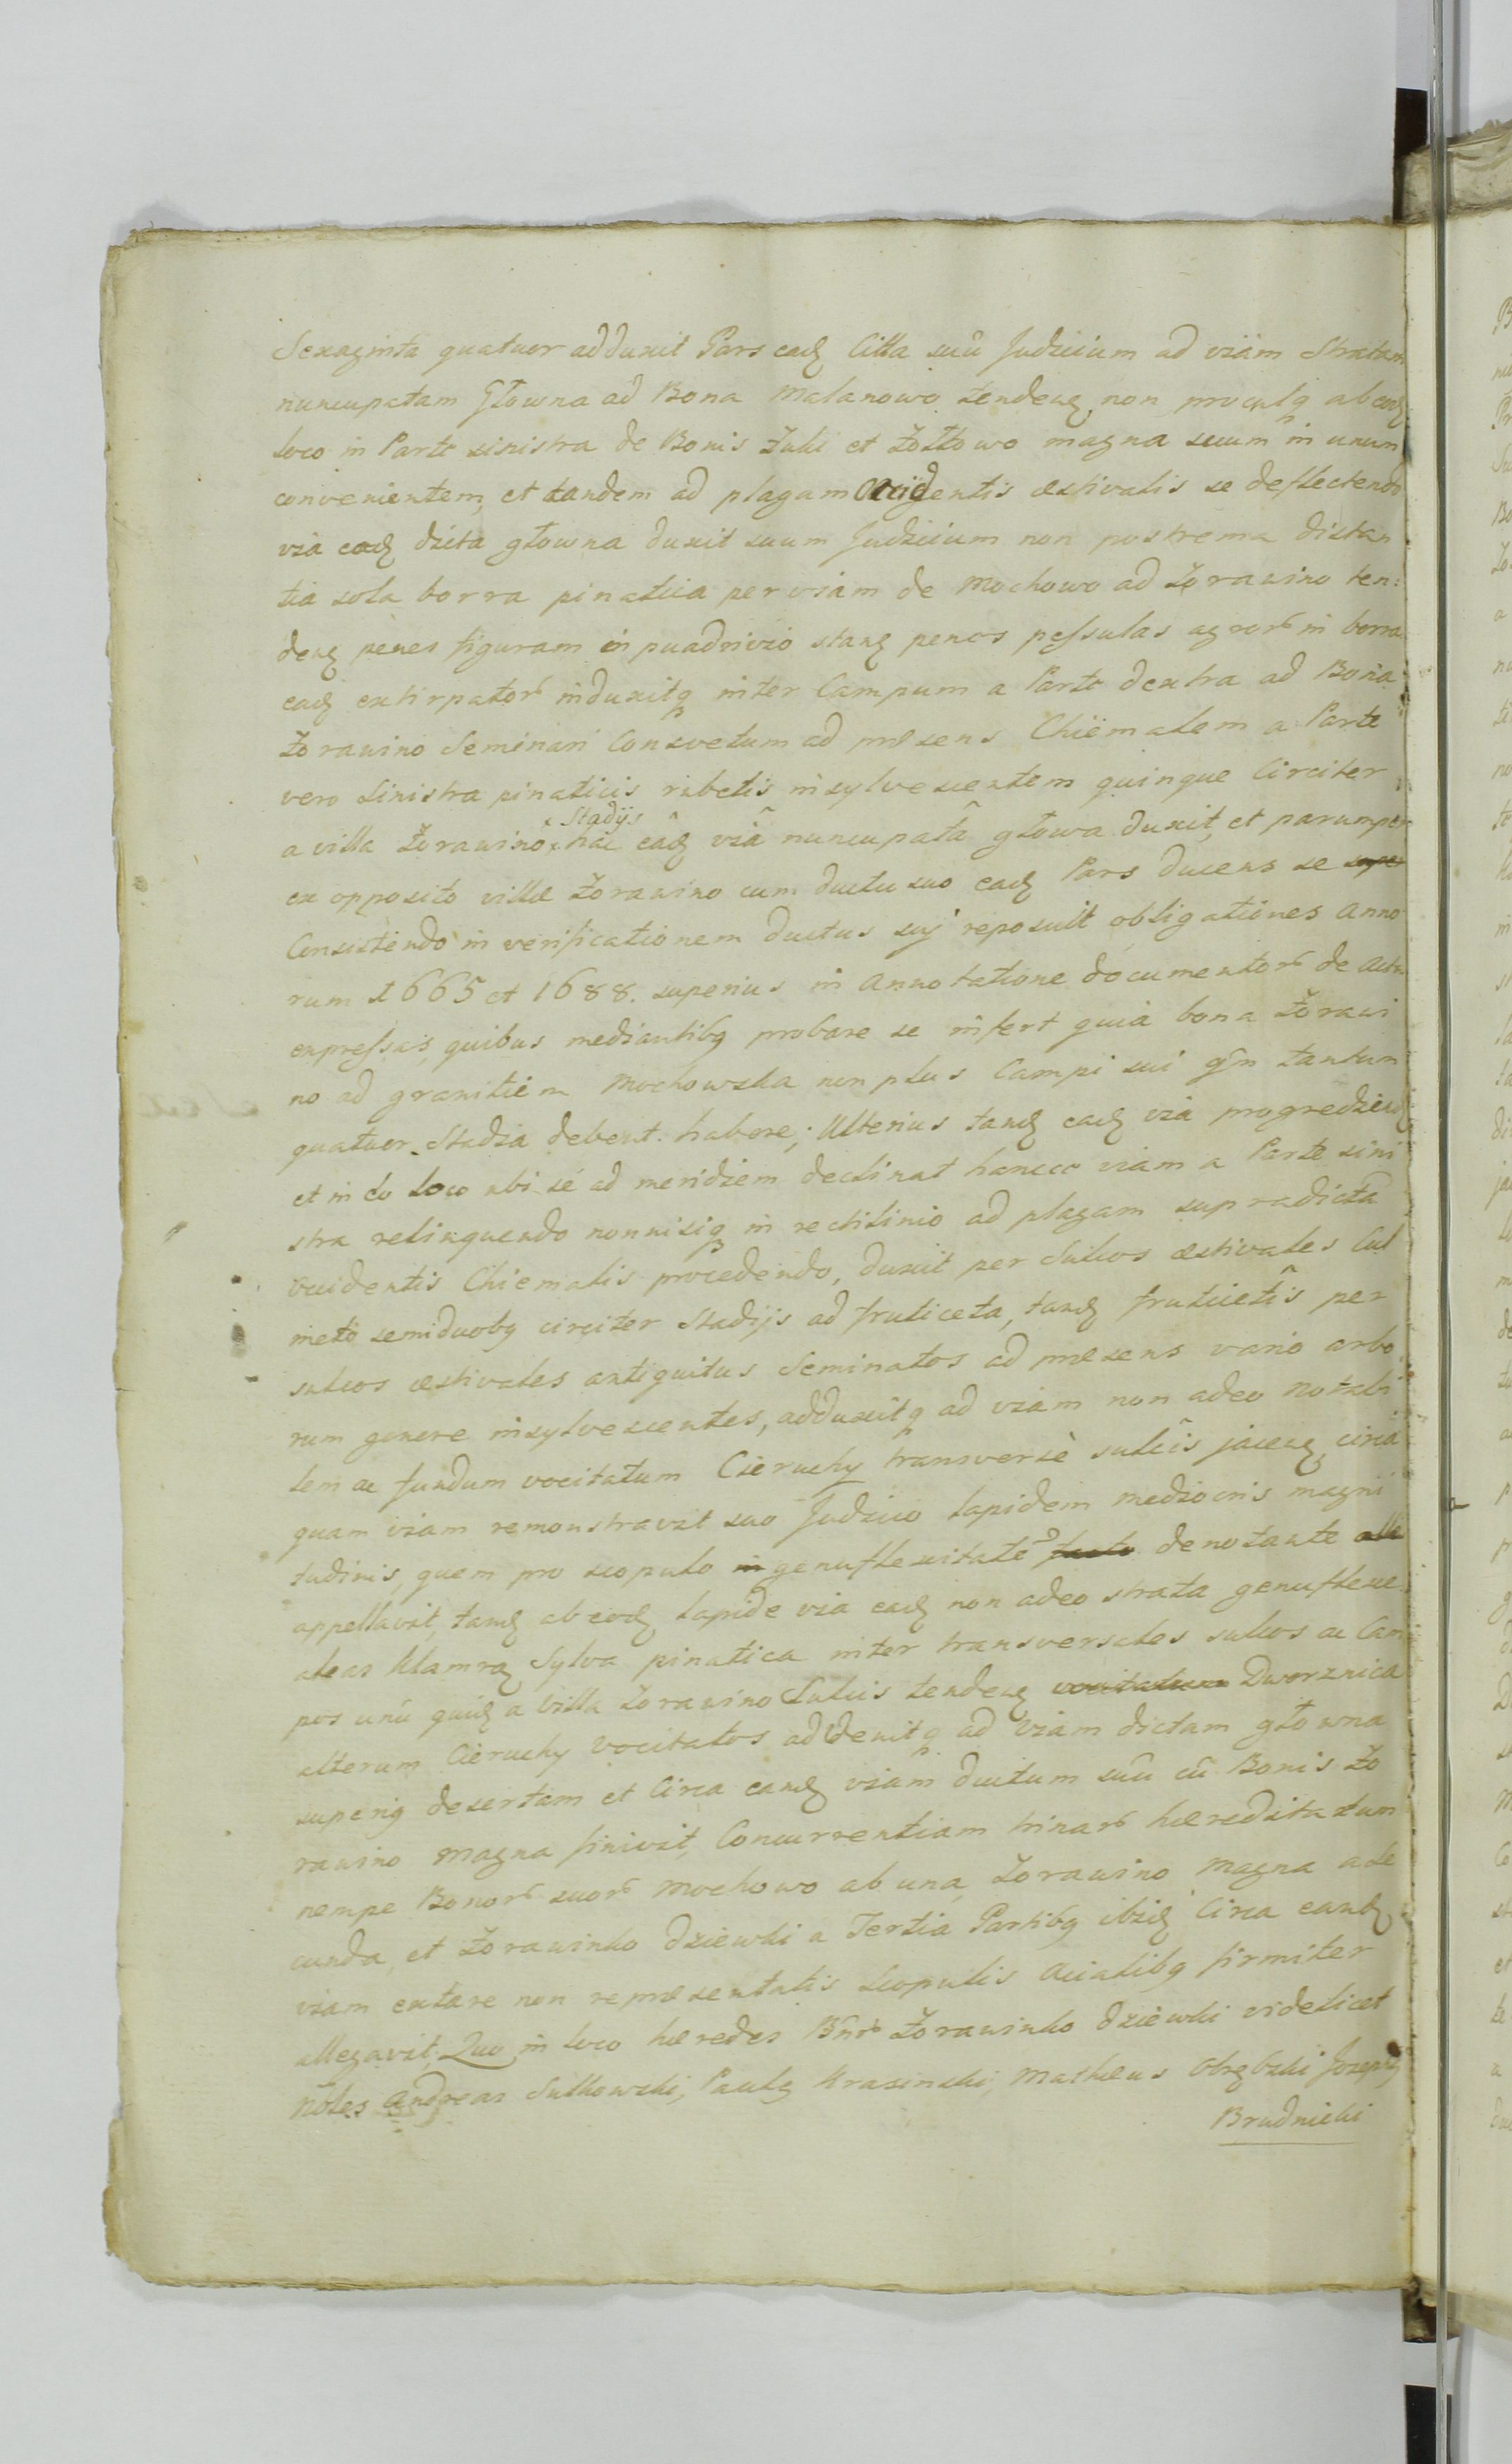 Sexaginta quatuor adduxit Pars eadꝫ Citta suũ Judicium ad viam Stratam
nuncupatam Głowna ad Bona Malanowo tendenꝫ non proculqꝫ ab eodꝫ
loco in Parte sinistra de Bonis Żuki et Żółtowo magna suum in unum
convenientem, et tandem ad plagam Occidentis æstivalis se deflectendo
via eadꝫ dicta głowna duxit suum Judicium non postrema distan
tia sola borra pinaticia per viam de Mochowo ad Żorawino ten:
denꝫ penes figuram in quadrivio stanꝫ penes pessulas agror̃ in borra
eadꝫ extirpator̃ induxitqꝫ inter Campum a Parte dextra ad Bona
Żorawino Seminari Consvetum ad præsens Chiemalem a Parte
vero Sinistra pinaticiis rubetis insylvescentem quinque Circiter
a villa Żorawino × Stadijs hac eâdꝫ viâ nuncupatâ głowa duxit, et parumper
ex opposito villæ Żorawino cum ductu suo eadꝫ Pars ducens se
Consistendo in verificationem ductus suj reposuit obligationes Anno
rum 1665 et 1688. superius in Annotatione documentor̃ de Actu
expressas, quibus mediantibꝫ probare se infert quia bona Żorawi
no ad granitiem Mochowska non plus Campi sui q̃m tantum
quatuor Stadia debent habere; Ulterius tandꝫ eadꝫ via progrediendꝫ
et in eo loco ubi se ad meridiem declinat hancce viam a Parte sini
stra relinquendo nonnisiqꝫ in rectilinio ad plagam supradictã
Occidentis Chiemalis procedendo, duxit per Sulcos æstivales Cul
meto semiduobꝫ circiter Stadijs ad fruticeta, tandꝫ fruticetis per
sulcos æstivales antiquitus Seminatos ad præsens vario arbo
rum genere insylvescentes, adduxitqꝫ ad viam non adeo notabi
lem ac fundum vocitatum Cieruchy transversè sulcis jacenꝫ circa
quam viam remonstravit suo Judicio lapidem mediocris magni
tudinis, quem pro scopulo genuflexitatẽ denotante
appellavit, tandꝫ ab eodꝫ lapide via eadꝫ non adeo strata genuflexe
alias klamrą Sylva pinatica inter transversales sulcos ac Cam
pos unũ quidꝫ a Villa Żorawino Sulcis tendenꝫ Dworznica
alterum Cieruchy vocitatos addenitqꝫ ad viam dictam głowna
superiꝫ desertam et Circa eandꝫ viam ductum suũ cũ Bonis Żo
rawino magna finivit, Concurrentiam trinar̃ hæreditatum
nempe Bonor̃ suor̃ Mochowo ab una, Żorawino Magna a Se
cunda, et Żorawinko dziewki a Tertia Partibꝫ ibidꝫ Circa eandꝫ
viam extare non repræsentatis Scopulis Acialibꝫ firmiter
allegavit; Quo in loco hæredes Bñr̃ Żorawinko dziewki videlicet
Nobles Andreas Sułkowski, Paulꝫ Krasinski, Mathæus Obrębski Josephꝫ
Brudnicki